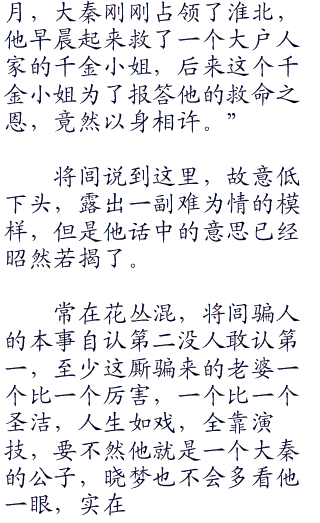 月，大秦刚刚占领了淮北，
他早晨起来救了一个大户人
家的千金小姐，后来这个千
金小姐为了报答他的救命之
恩，竟然以身相许。”
将闾说到这里，故意低
下头，露出一副难为情的模
样，但是他话中的意思已经
昭然若揭了。
常在花丛混，将闾骗人
的本事自认第二没人敢认第
一，至少这厮骗来的老婆一
个比一个厉害，一个比一个
圣洁，人生如戏，全靠演
技，要不然他就是一个大秦
的公子，晓梦也不会多看他
一眼，实在